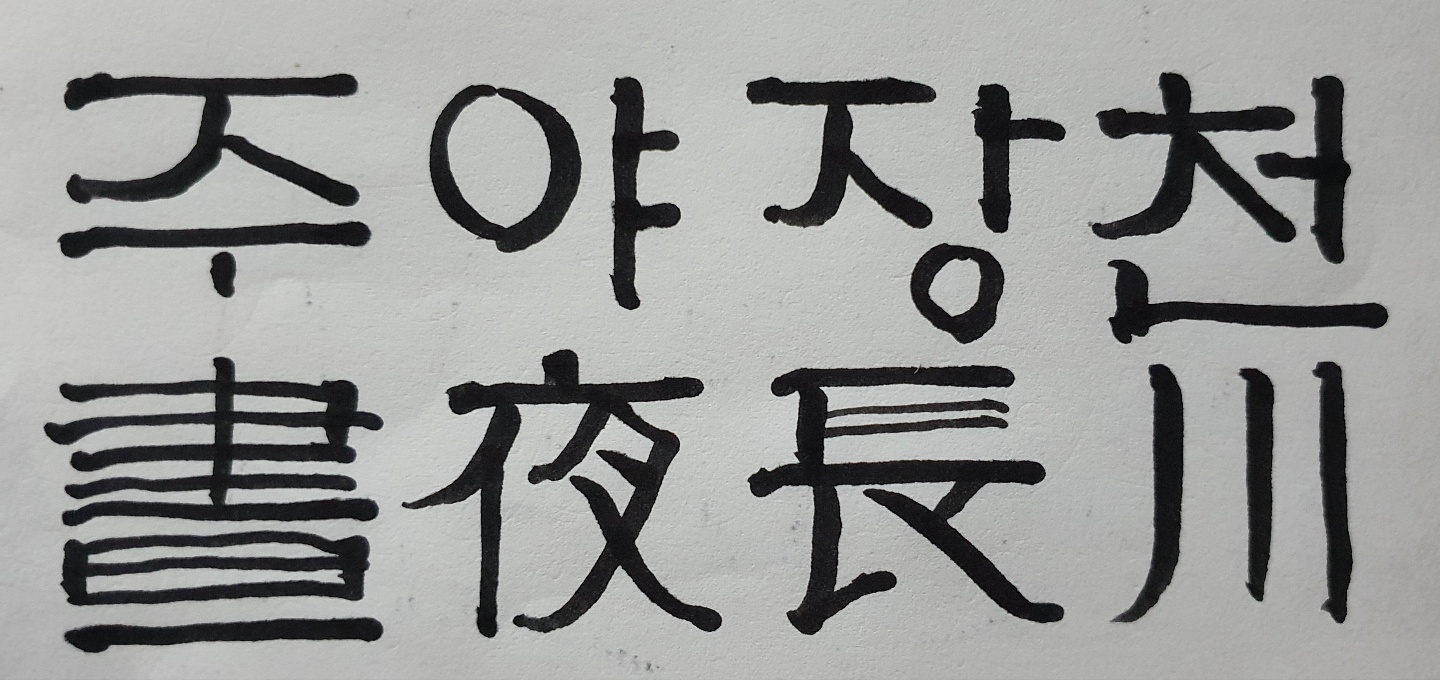 주야장천
晝夜長川